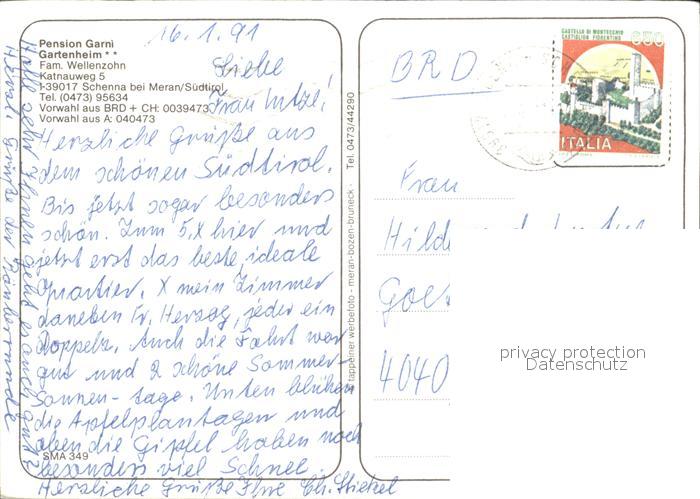 16.1.91
Pension Garni
Gartenheim **
Fam. Wellenzohn
Katnauweg 5
I-39017 Schenna bei Meran/Südtirol
Tel. (0473) 95634
Vorwahl aus BRD + CH: 0039473
Vorwahl aus A: 040473
Liebe
Frau
Herzliche Grüße aus
dem schönen Südtirol.
Bis jetzt sogar besonders
schön. Zum 5. X hier und
jetzt erst das beste, ideale
Quartier. X mein Zimmer
daneben Fr. Herzog, jeder ein
Doppelz. Auch die Fahrt war
gut und 2 schöne Sommer-
Sonnen-tage. Unten blühen
die Apfelplantagen und
oben die Gipfel haben noch
besonders viel Schnee
Herzliche Grüße Ihre Ch.
Hoffe sehr Ihnen geht es auch gut
Herzl. Grüße der
SMA 349
tappeiner werbefoto - meran-bozen-bruneck - Tel. 0473/44290
BRD
CASTELLO DI MONTECCHIO
CASTIGLION FIORENTINO
650
ITALIA
Frau
Hild
4040
privacy protection
Datenschutz